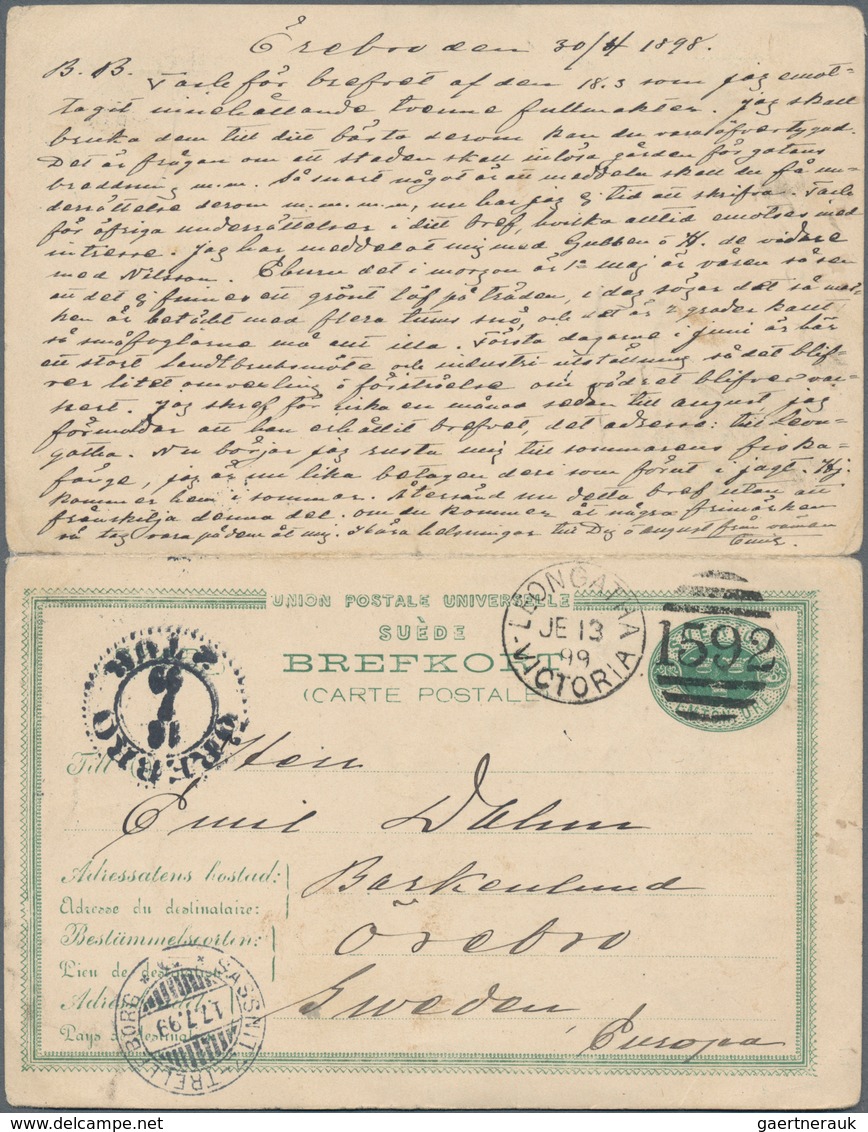 Örebro den 30/4 1898.
B. B. Tack för brefvet af den 18.3 som jag emot-
tagit innehållande tvenne fullmakter. Jag skall
bruka dem till ditt bästa derom kan du vara öfvertygad.
Det är frågan om att staden skall inlösa gården för gatans
breddning m.m. Så snart något är att meddela skall du få un-
derrättelse derom m.m.m.m, nu har jag ej tid att skrifva. Tack
för öfriga underrättelser i ditt bref, hvilka alltid emotses med
intresse. Jag har meddelat mig med Gubben i H. de vidare
med Nilsson. Ehuru det i morgon är 1ª maj är våren så sen
att det ej finnes ett grönt löf på träden, i dag snögar det så mar-
ken är betäckt med flera tums snö, och det är 2 grader kallt
så småfoglarne må att illa. Första dagarne i juni är här
ett stort landtbruksmöte och industri utställning så det blif-
ver litet omvexling i förströelse om vädret blifver vac-
kert. Jag skref för cirka en månad sedan till august jag
förmodar att han erhållit brefvet, det adresse: till Leon-
gatha. Nu börjar jag rusta mig till sommarens fiska-
fänge, jag är nu lika betagen deri som förut i jagt. Hj.
kommer hem i sommar. Återsänd nu detta bref utan att
frånskilja denna del. om du kommer åt några frimärken
så tag vara på dem åt mig. Kära helsningar till Dig o august från vännen
Emil.
UNION POSTALE UNIVERSELLE
SUÈDE
BREFKORT
(CARTE POSTALE)
LEONGATHA
JE 13
99
VICTORIA
1592
ÖREBRO
18
7
99
Till
Herr
Emil Dahm
Adressatens bostad:
Barkenlund
Adresse du destinataire:
Bestämmelseorten:
Örebro
Lieu de destination:
Sweden,
Pays de destination
Europa
SASSNITZ-TRELLEBORG
17.7.99
gaertnerauk